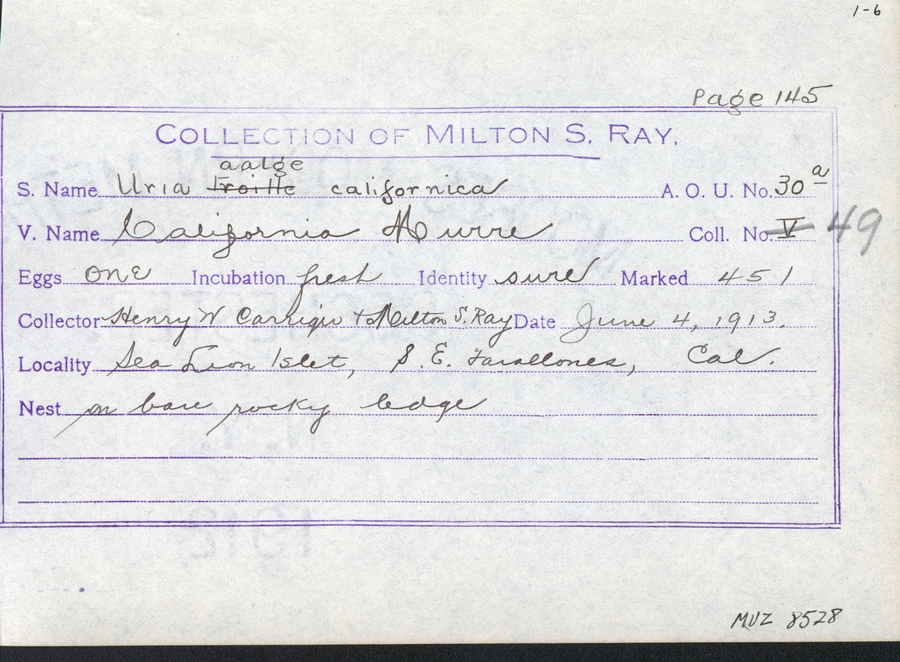 1-6
Page 145
COLLECTION OF MILTON S. RAY.
aalge
S. Name Uria troille californica A. O. U. No. 30a
V. Name California Murre Coll. No. V 49
Eggs one Incubation fresh Identity sure Marked 451
Collector Henry W Carriger + Milton S. Ray Date June 4, 1913.
Locality Sea Lion Islet, S. E. Farallones, Cal.
Nest on bare rocky ledge
MVZ 8528